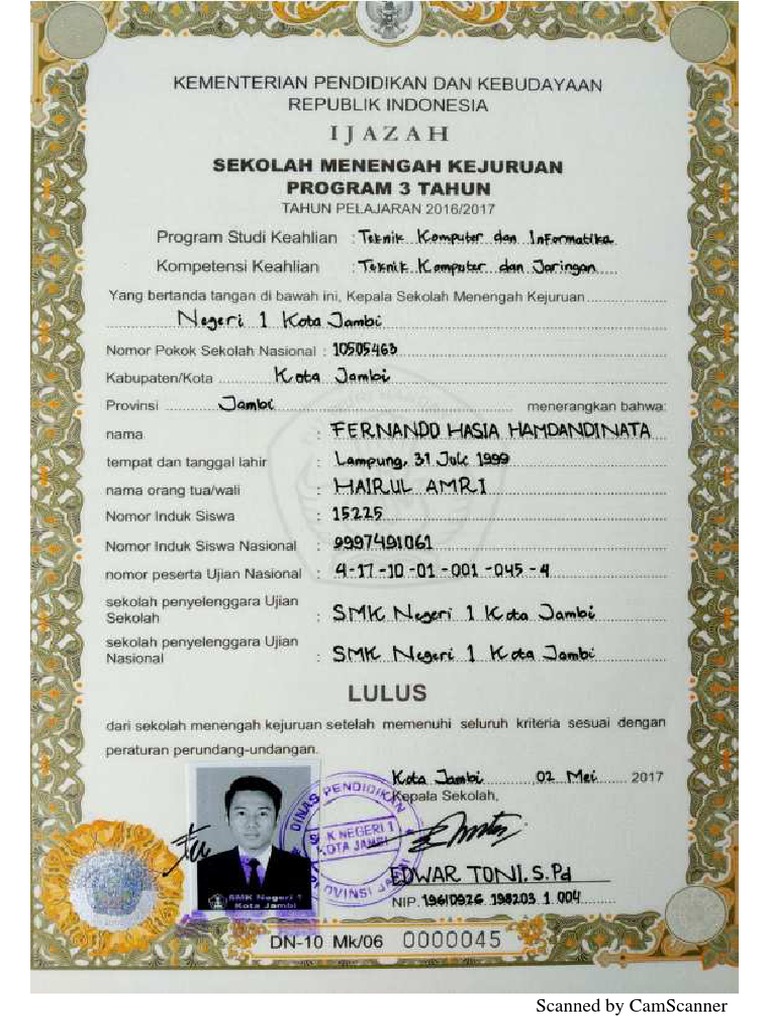 KEMENTERIAN PENDIDIKAN DAN KEBUDAYAAN
REPUBLIK INDONESIA
IJAZAH
SEKOLAH MENENGAH KEJURUAN
PROGRAM 3 TAHUN
TAHUN PELAJARAN 2016/2017
Program Studi Keahlian : Teknik Komputer dan Informatika
Kompetensi Keahlian : Teknik Komputer dan Jaringan
Yang bertanda tangan di bawah ini, Kepala Sekolah Menengah Kejuruan
Negeri 1 Kota Jambi
Nomor Pokok Sekolah Nasional : 10505463
Kabupaten/Kota Kota Jambi
Provinsi Jambi menerangkan bahwa:
nama : FERNANDO HASIA HAMDANDINATA
tempat dan tanggal lahir : Lampung, 31 Juli 1999
nama orang tua/wali : HAIRUL AMRI
Nomor Induk Siswa : 15225
Nomor Induk Siswa Nasional : 9997491061
nomor peserta Ujian Nasional : 4-17-10-01-001-045-4
sekolah penyelenggara Ujian
Sekolah : SMK Negeri 1 Kota Jambi
sekolah penyelenggara Ujian
Nasional : SMK Negeri 1 Kota Jambi
LULUS
dari sekolah menengah kejuruan setelah memenuhi seluruh kriteria sesuai dengan
peraturan perundang-undangan.
Kota Jambi 02 Mei 2017
Kepala Sekolah,
DINAS PENDIDIKAN
SMK NEGERI 1
KOTA JAMBI
PROVINSI JAMBI
EDWAR TONI. S.Pd
NIP. 19610926 198203 1 004
SMK Negeri 1
Kota Jambi
DN-10 Mk/06 0000045
Scanned by CamScanner